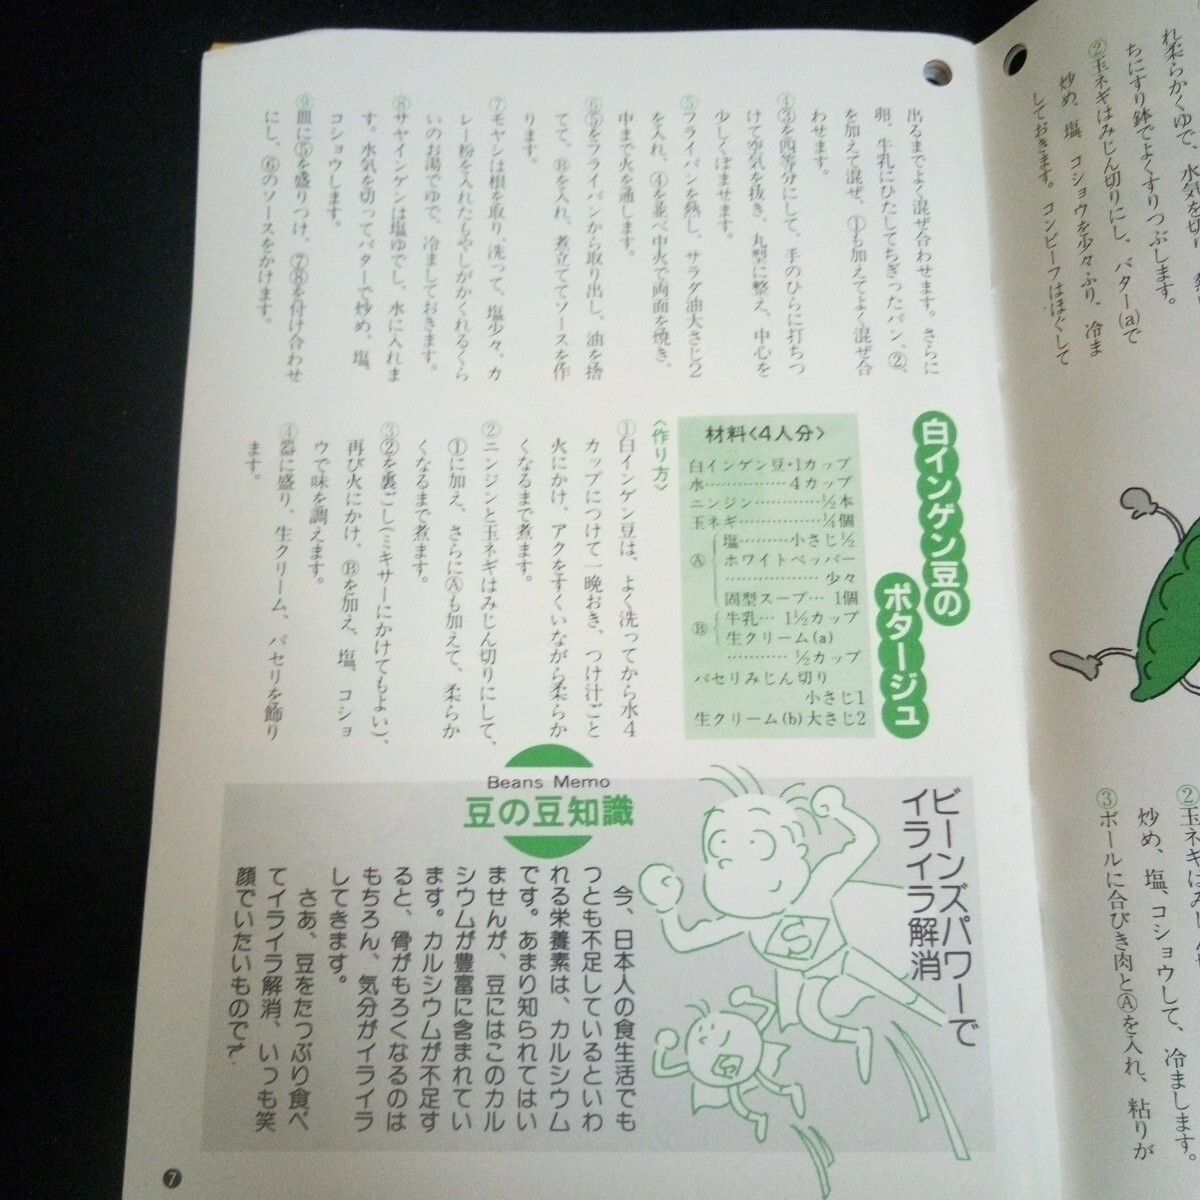 れ柔らかくゆで、水気を切り、熱
ちにすり鉢でよくすりつぶします。
②玉ネギはみじん切りにし、バター(a)で
炒め、塩、コショウを少々ふり、冷ま
しておきます。コンビーフはほぐして
②玉ネギはみじん切
炒め、塩、コショウして、冷まします。
③ボールに合びき肉とⒶを入れ、粘りが
出るまでよく混ぜ合わせます。さらに
卵、牛乳にひたしてちぎったパン、②、
を加えて混ぜ、①も加えてよく混ぜ合
わせます。
④③を四等分にして、手のひらに打ちつ
けて空気を抜き、丸型に整え、中心を
少しくぼませます。
⑤フライパンを熱し、サラダ油大さじ2
を入れ、④を並べ中火で両面を焼き、
中まで火を通します。
⑥⑤をフライパンから取り出し、油を捨
てて、Ⓑを入れ、煮立ててソースを作
ります。
⑦モヤシは根を取り、洗って、塩少々、カ
レー粉を入れたもやしがかくれるくら
いのお湯でゆで、冷ましておきます。
⑧サヤインゲンは塩ゆでし、水に入れま
す。水気を切ってバターで炒め、塩、
コショウします。
⑨皿に⑤を盛りつけ、⑦⑧を付け合わせ
にし、⑥のソースをかけます。
白インゲン豆の
ポタージュ
材料〈4人分〉
白インゲン豆・1カップ
水……………4カップ
ニンジン…………½本
玉ネギ……………¼個
Ⓐ
塩………小さじ½
ホワイトペッパー
………………少々
固型スープ…1個
Ⓑ
牛乳…1½カップ
生クリーム(a)
…………½カップ
パセリみじん切り
小さじ1
生クリーム(b)大さじ2
〈作り方〉
①白インゲン豆は、よく洗ってから水4
カップにつけて一晩おき、つけ汁ごと
火にかけ、アクをすくいながら柔らか
くなるまで煮ます。
②ニンジンと玉ネギはみじん切りにして、
①に加え、さらにⒶも加えて、柔らか
くなるまで煮ます。
③②を裏ごし(ミキサーにかけてもよい)、
再び火にかけ、Ⓑを加え、塩、コショ
ウで味を調えます。
④器に盛り、生クリーム、パセリを飾り
ます。
Beans Memo
豆の豆知識
ビーンズパワーで
イライラ解消
今、日本人の食生活でも
つとも不足しているといわ
れる栄養素は、カルシウム
です。あまり知られてはい
ませんが、豆にはこのカル
シウムが豊富に含まれてい
ます。カルシウムが不足す
ると、骨がもろくなるのは
もちろん、気分がイライラ
してきます。
さあ、豆をたっぷり食べ
てイライラ解消、いつも笑
顔でいたいものです。
7